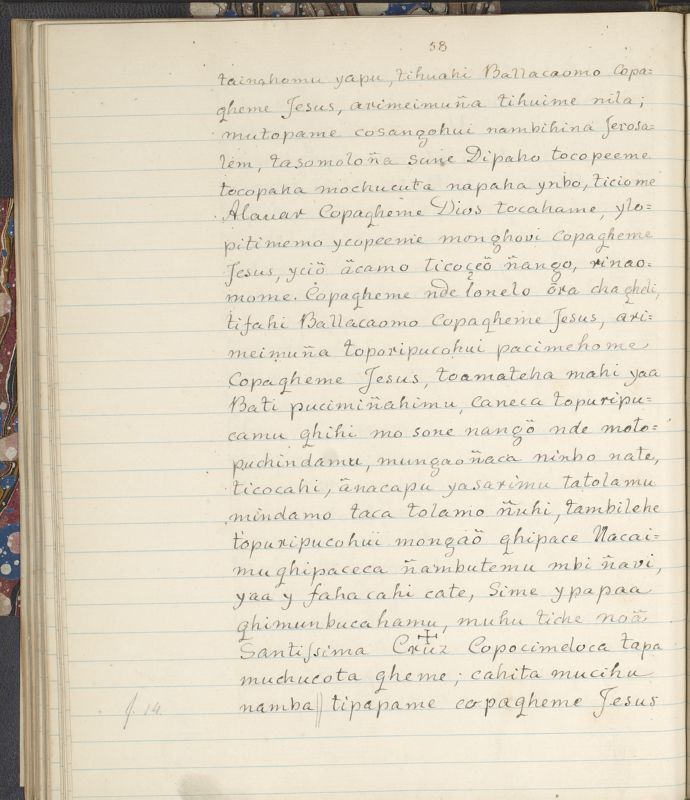 58
tainahomu yapu, tihuahi Ballacaomo Copa=
qheme Jesus, arimeimuña tihuime nila;
mutopame cosangohui nambihina Jerosa=
lem, tasomoloña sune Dipaho tocopeeme
tocopaha mochucuta napaha ynbo, ticiome
Alauar Copaqheme Dios tocahame, ylo=
pitimemo ycopeeme monghovi Copaqheme
Jesus, yciö äcamo ticoçeö ñango, rinao=
mome. Copaqheme nde lonelo öra chaqhedi,
tifahi Ballacaomo Copaqheme Jesus, ari=
meimuña toporipucohui pacimehome
Copaqheme Jesus, toamateha mahi yaa
Bati pucimiñahimu, caneca topuripu=
camu qhihi mo sone nangö nde moto=
puchindamu, mungaoñaca ninbo nate,
ticocahi, änacapu yasarimu tatolamu
mindamo taca tolamo ñuhi, tambilehe
topuripucohui mongäö qhipace Nacai=
mu qhipaceca ñambutemu mbi ñavi,
yaa y fahacahi cate, Sime ypapaa
qhimunbucahamu, muhu tiche noä
Santissima Cruz Copocimeloca tapa
muchucota qheme; cahita mucihu
namba || tipapame copaqheme Jesus
f. 14